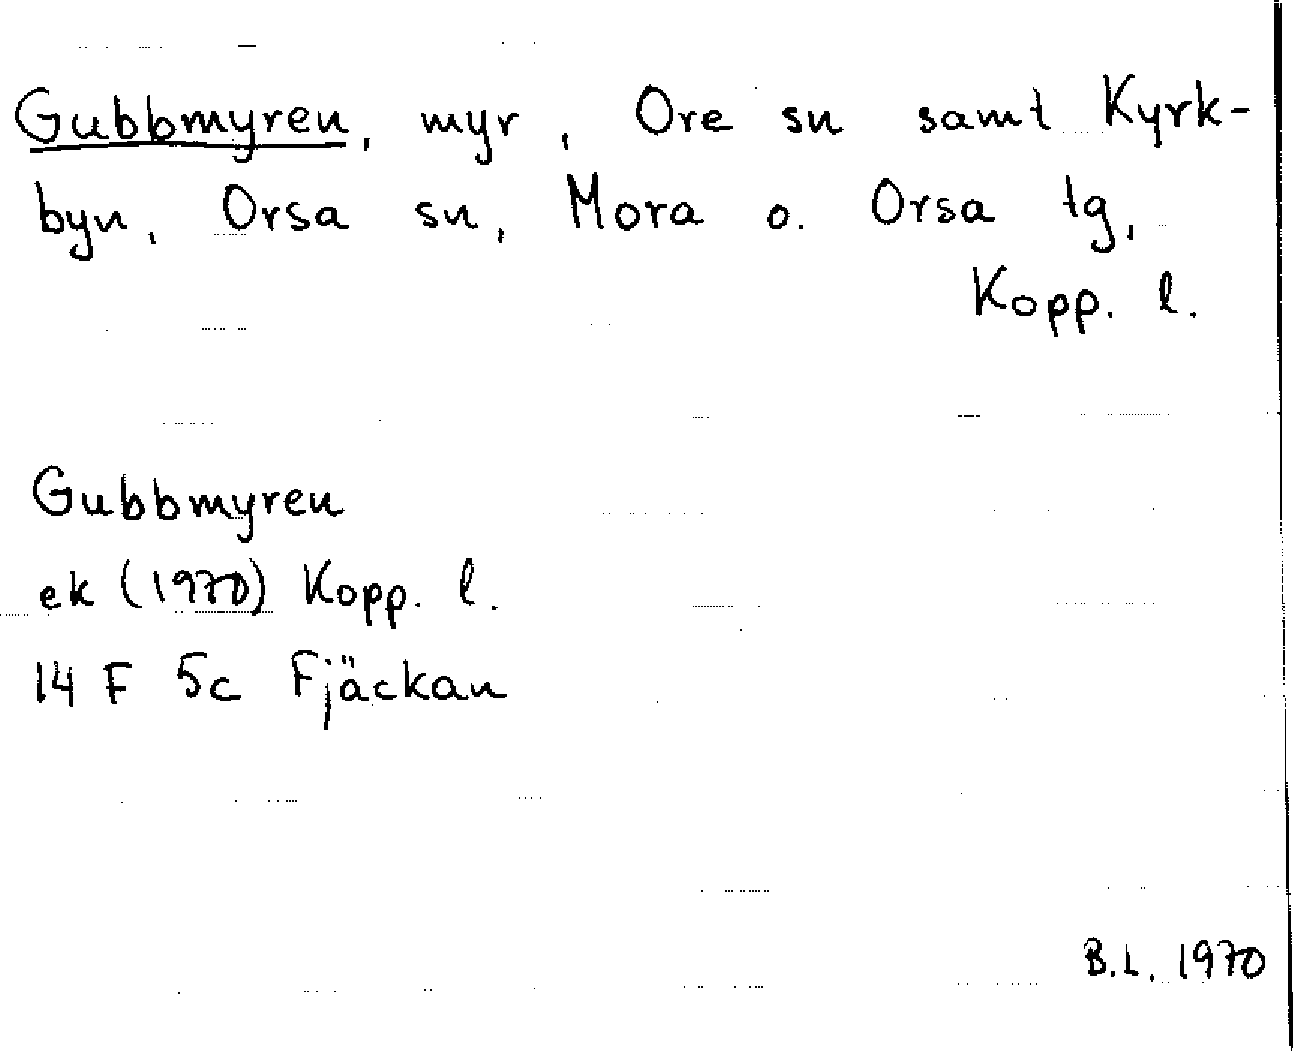 Gubbmyren, myr, Ore sn samt Kyrk-
byn, Orsa sn, Mora o. Orsa tg,
Kopp. l.
Gubbmyren
ek (1970) Kopp. l.
14 F 5c Fjäckan
B.L. 1970